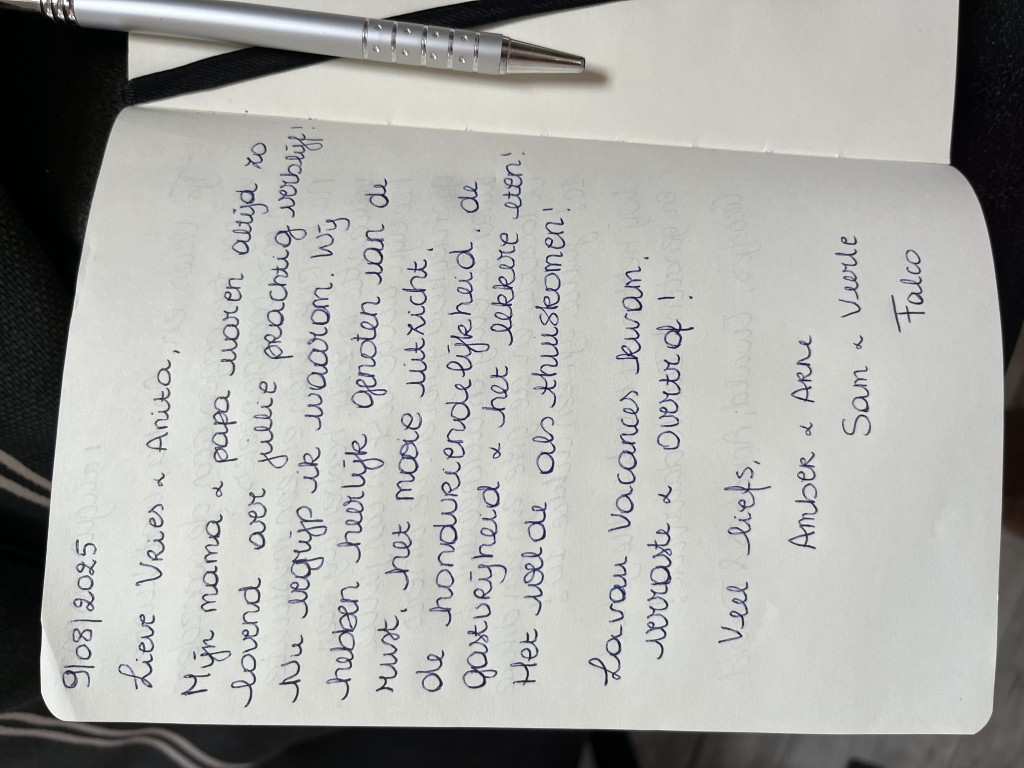 9/08/2025
Lieve Vries & Anita,
Mijn mama & papa waren altijd zo
lovend over jullie prachtig verblijf!
Nu begrijp ik waarom. Wij
hebben heerlijk genoten van de
rust, het mooie uitzicht,
de hondvriendelijkheid, de
gastvrijheid & het lekkere eten!
Het voelde als thuiskomen!
Lavau Vacances kwam,
verraste & overtrof!
Veel liefs,
Amber & Arne
Sam & Veerle
Falco